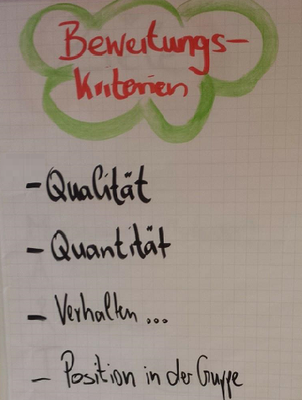 Bewertungs-
Kriterien
- Qualität
- Quantität
- Verhalten...
- Position in der Gruppe